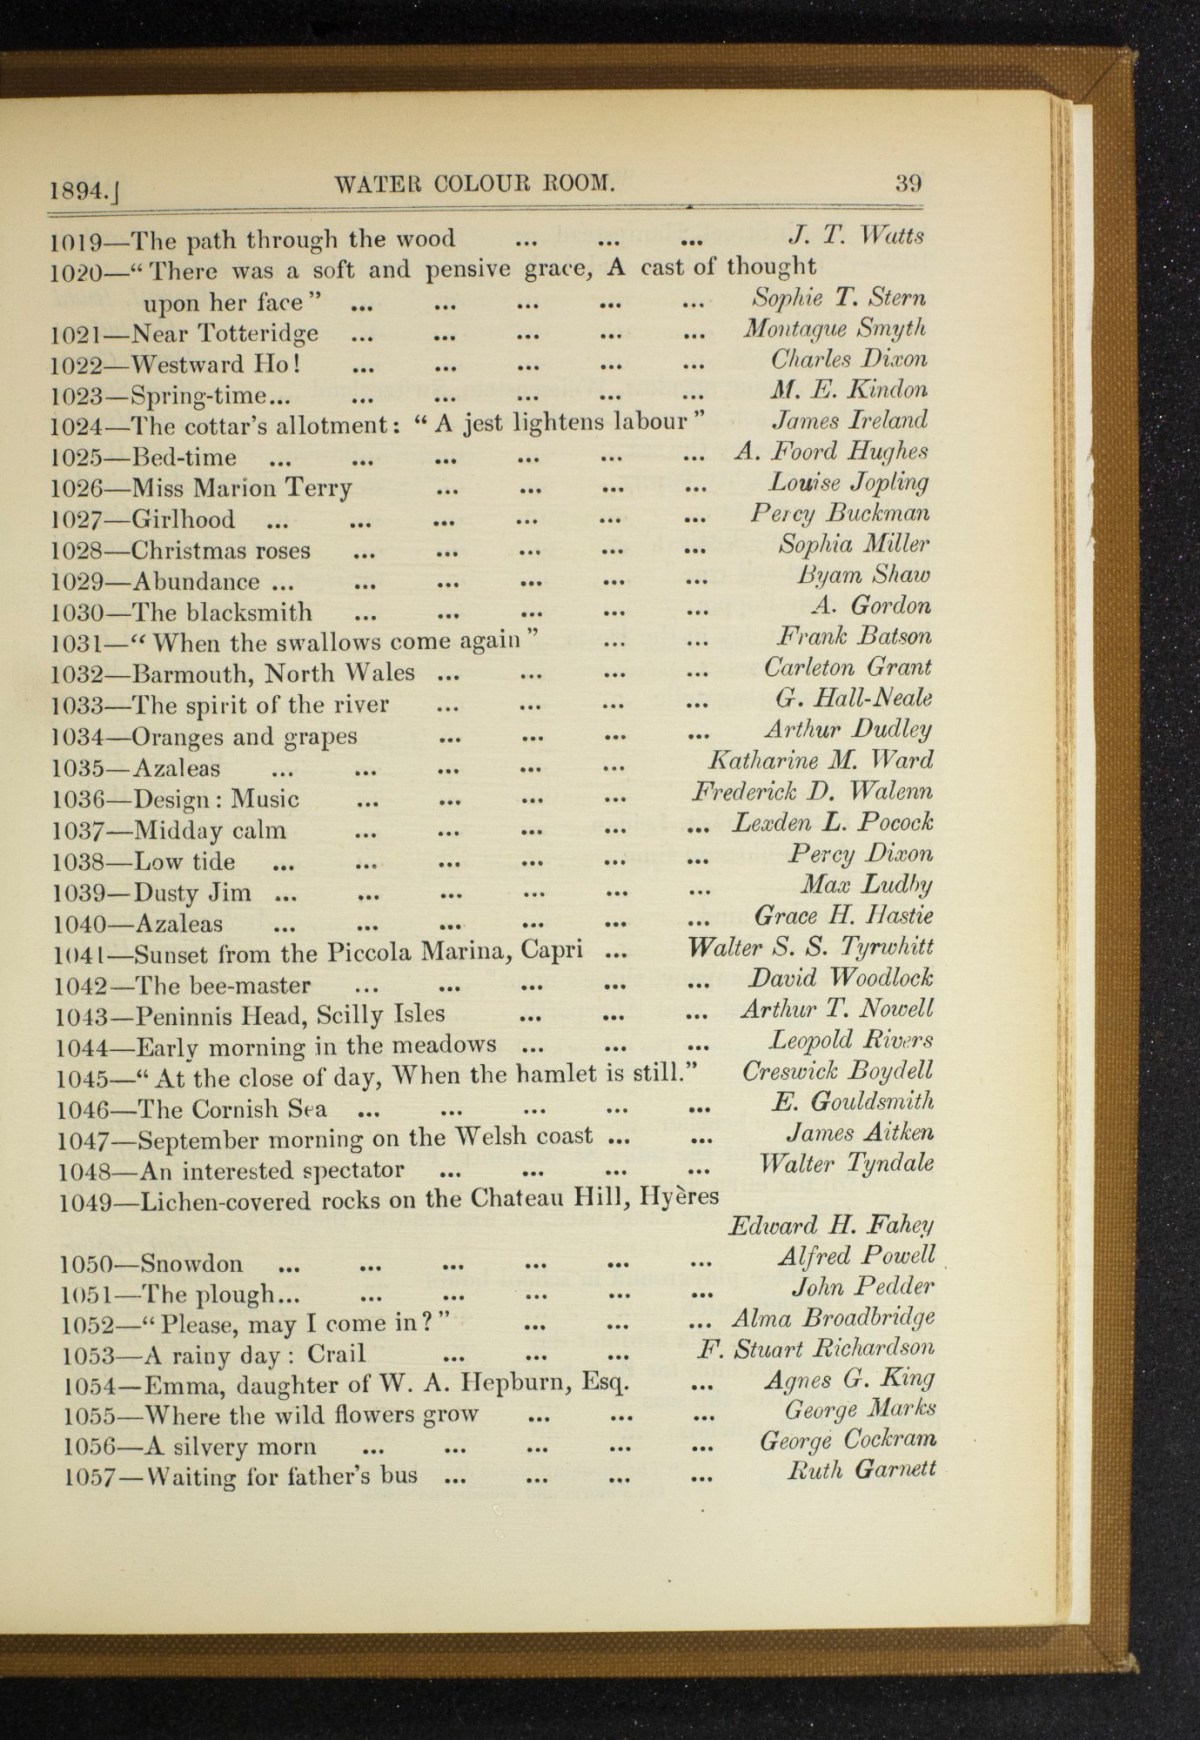 1894.] WATER COLOUR ROOM. 39
1019—The path through the wood ... ... ... J. T. Watts
1020—“There was a soft and pensive grace, A cast of thought
upon her face” ... ... ... ... ... Sophie T. Stern
1021—Near Totteridge ... ... ... ... ... Montague Smyth
1022—Westward Ho! ... ... ... ... ... Charles Dixon
1023—Spring-time... ... ... ... ... ... M. E. Kindon
1024—The cottar’s allotment: “A jest lightens labour” James Ireland
1025—Bed-time ... ... ... ... ... ... A. Foord Hughes
1026—Miss Marion Terry ... ... ... ... Louise Jopling
1027—Girlhood ... ... ... ... ... ... Percy Buckman
1028—Christmas roses ... ... ... ... ... Sophia Miller
1029—Abundance ... ... ... ... ... ... Byam Shaw
1030—The blacksmith ... ... ... ... ... A. Gordon
1031—“When the swallows come again” ... ... Frank Batson
1032—Barmouth, North Wales ... ... ... ... Carleton Grant
1033—The spirit of the river ... ... ... ... G. Hall-Neale
1034—Oranges and grapes ... ... ... ... Arthur Dudley
1035—Azaleas ... ... ... ... ... Katharine M. Ward
1036—Design: Music ... ... ... ... Frederick D. Walenn
1037—Midday calm ... ... ... ... ... Lexden L. Pocock
1038—Low tide ... ... ... ... ... ... Percy Dixon
1039—Dusty Jim ... ... ... ... ... ... Max Ludby
1040—Azaleas ... ... ... ... ... ... Grace H. Hastie
1041—Sunset from the Piccola Marina, Capri ... Walter S. S. Tyrwhitt
1042—The bee-master ... ... ... ... ... David Woodlock
1043—Peninnis Head, Scilly Isles ... ... ... Arthur T. Nowell
1044—Early morning in the meadows ... ... ... Leopold Rivers
1045—“At the close of day, When the hamlet is still.” Creswick Boydell
1046—The Cornish Sea ... ... ... ... ... E. Gouldsmith
1047—September morning on the Welsh coast ... ... James Aitken
1048—An interested spectator ... ... ... ... Walter Tyndale
1049—Lichen-covered rocks on the Chateau Hill, Hyères
Edward H. Fahey
1050—Snowdon ... ... ... ... ... ... Alfred Powell
1051—The plough... ... ... ... ... ... John Pedder
1052—“Please, may I come in?” ... ... ... Alma Broadbridge
1053—A rainy day: Crail ... ... ... F. Stuart Richardson
1054—Emma, daughter of W. A. Hepburn, Esq. ... Agnes G. King
1055—Where the wild flowers grow ... ... ... George Marks
1056—A silvery morn ... ... ... ... ... George Cockram
1057—Waiting for father’s bus ... ... ... ... Ruth Garnett